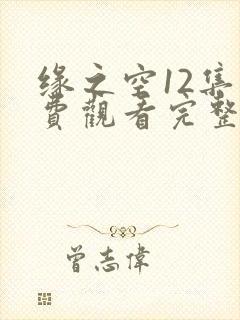 缘之空12集
費觀看完整
曾志偉